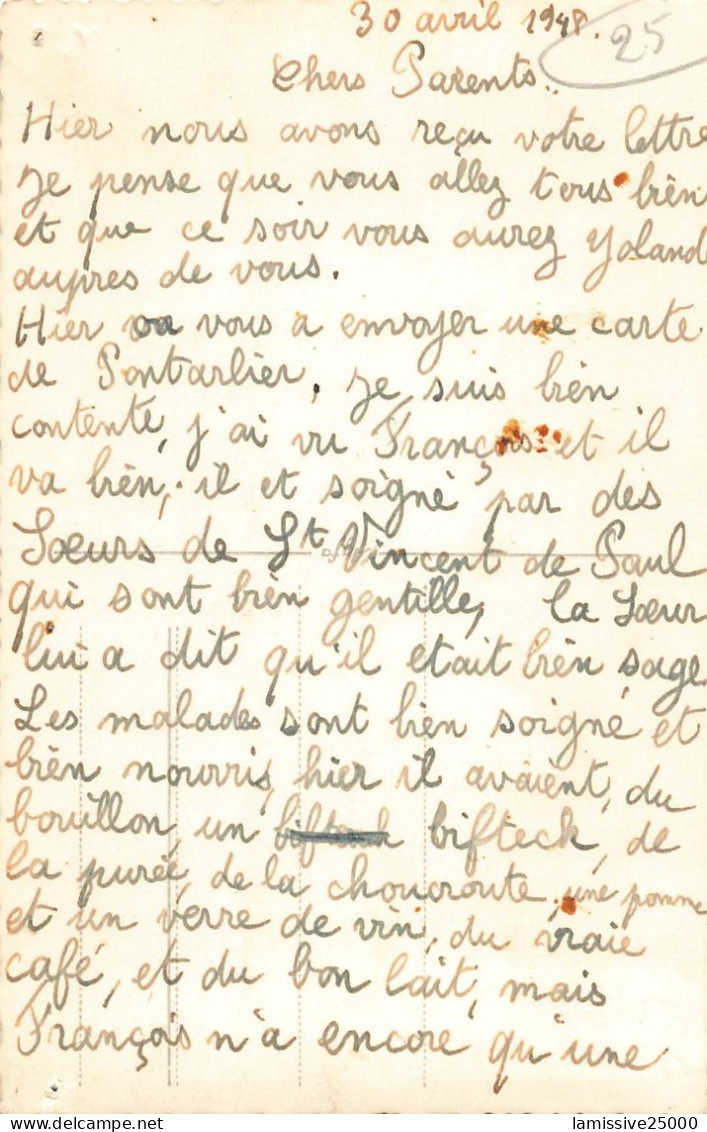 30 avril 1948.
25
Chers Parents..
Hier nous avons reçu votre lettre
je pense que vous allez tous bien
et que ce soir vous aurez Yoland
aupres de vous.
Hier on vous a envoyer une carte
de Pontarlier. je suis bien
contente, j'ai vu François et il
va bien, il et soigné par des
Sœurs de St Vincent de Paul
qui sont bien gentille, la Sœur
lui a dit qu'il etait bien sage.
Les malades sont bien soigné et
bien nourris, hier il avaient, du
bouillon, un bifteck, de
la purée, de la choucroute, une pomme
et un verre de vin, du vraie
café, et du bon lait, mais
François n'a encore qu'une
lamissive25000